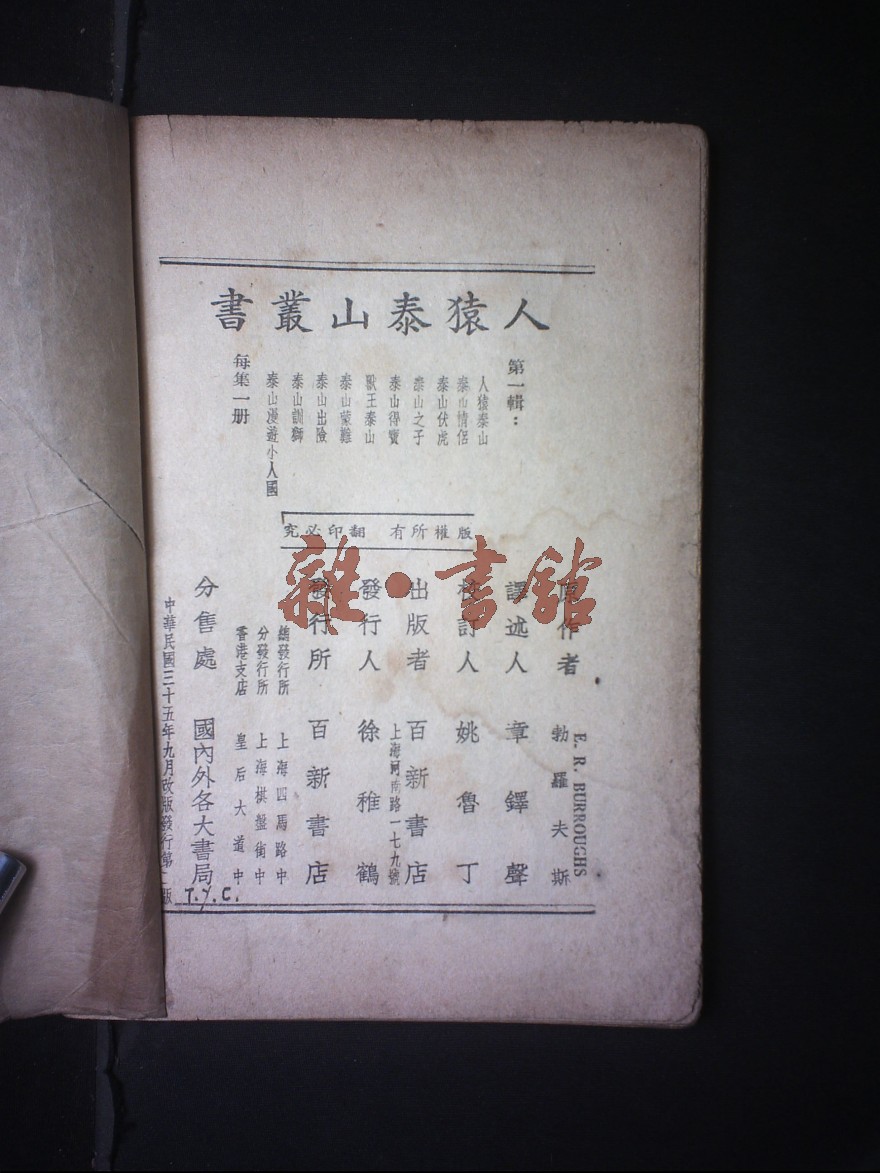 人猿泰山叢書
第一輯：
人猿泰山
泰山情侶
泰山伏虎
泰山之子
泰山得寶
獸王泰山
泰山蒙難
泰山出險
泰山訓獅
泰山漫遊小人國
每集一册
版權所有 翻印必究
原作者 E. R. BURROUGHS 勃羅夫斯
譯述人 章鐸聲
校訂人 姚魯丁
出版者 百新書店
上海河南路一七九號
發行人 徐稚鶴
發行所 百新書店
總發行所 上海四馬路中
分發行所 上海棋盤街中
香港支店 皇后大道中
分售處 國內外各大書局
中華民國三十五年九月改版發行第二版
T.Y.C.
雜·書館